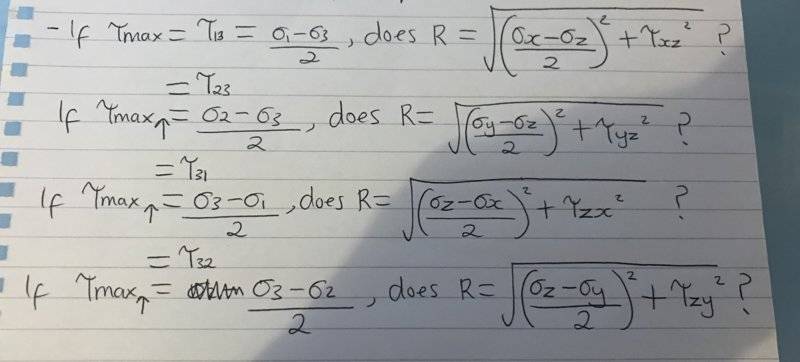 - If τmax = τ13 = (σ1-σ3)/2, does R = √(((σx-σz)/2)² + τxz²) ?
= τ23
If τmax↑ = (σ2-σ3)/2, does R = √(((σy-σz)/2)² + τyz²) ?
= τ31
If τmax↑ = (σ3-σ1)/2, does R = √(((σz-σx)/2)² + τzx²) ?
= τ32
If τmax↑ = (σ3-σ2)/2, does R = √(((σz-σy)/2)² + τzy²) ?